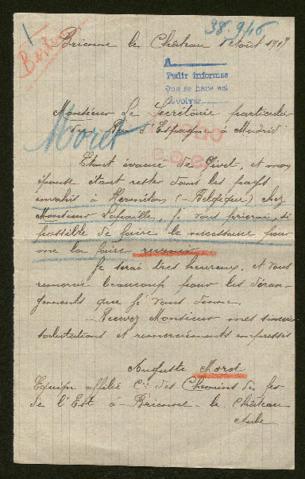 38.946
Brienne le Château 1 Août 1917
A
Pedir informes
que se hace así
Moret
Monsieur Le Secrétaire particulier
Roi d'Espagne à Madrid
Etant évacué de Givet, et mon
épouse étant restée dans les pays
envahis à (Belgique) chez
Monsieur je vous prierai, si
possible de faire le nécessaire pour
me la faire revenir.
Je serai très heureux, et vous
remercie beaucoup pour les déran-
gements que je vous donne.
Recevez Monsieur mes sincères
salutations et remerciements empressés
Auguste Moret
Equipe Cie des Chemins de fer
de l'Est à Brienne le Château
Aube